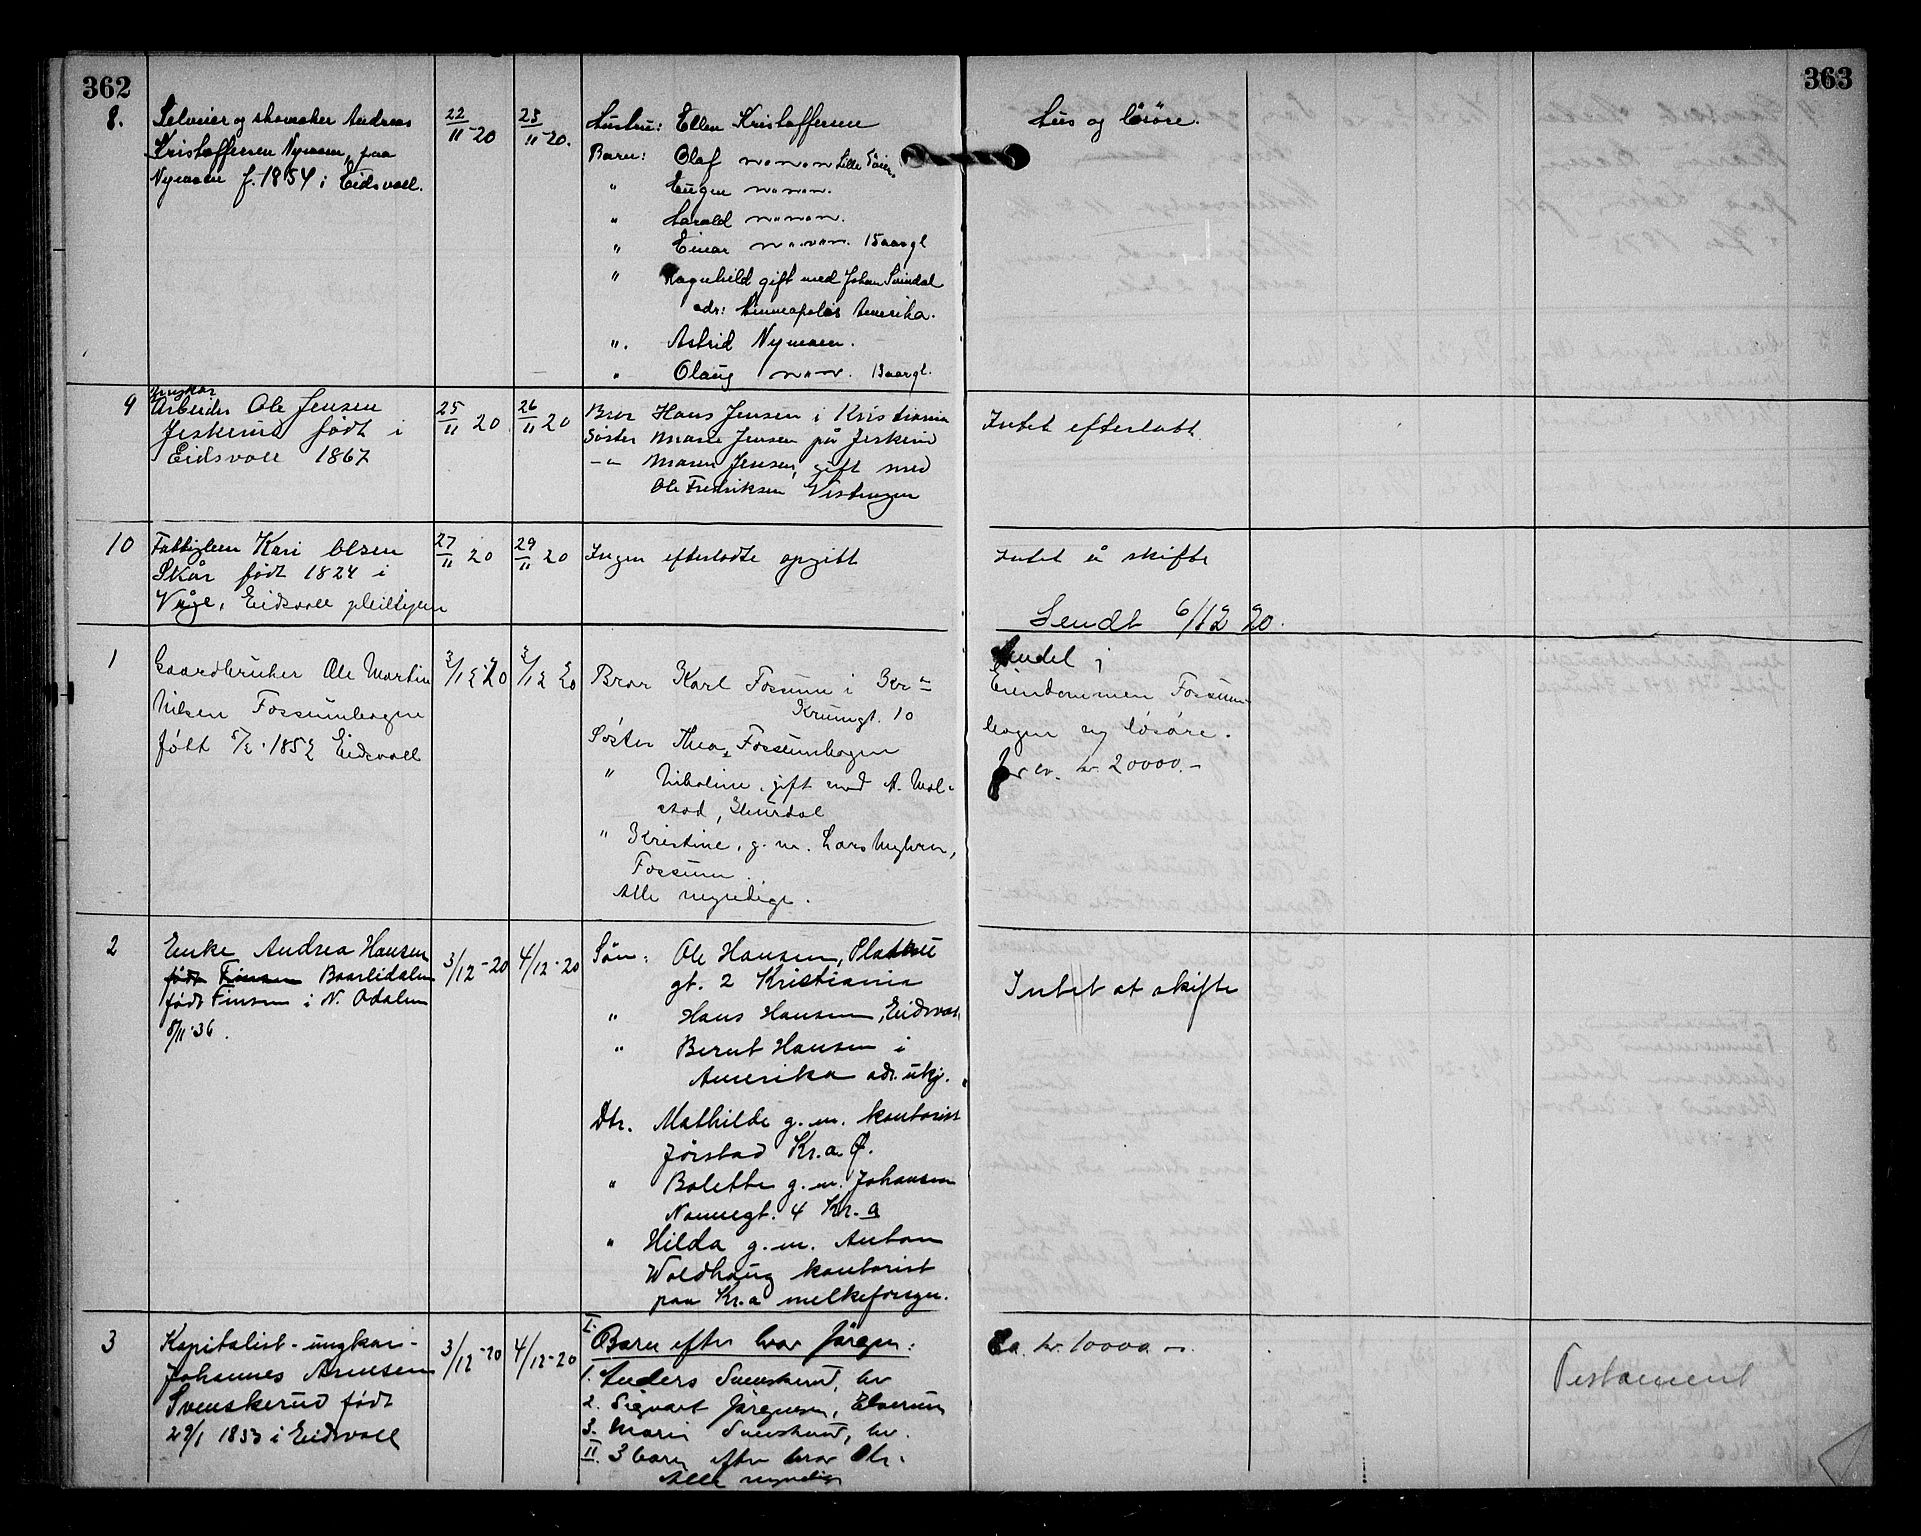 362
363
8.
Selveier og skomaker Andreas
Kristoffersen Nymoen, paa
Nymoen f. 1854 i Eidsvoll.
22/11-20
23/11-20.
Hustru: Ellen Kristoffersen
Barn: Olaf
" Eugen
" Harald
" Einar 15 aar gl
" Ragnhild gift med Johan
adr: Minneapolis Amerika.
". Astrid Nymoen.
" Olaug 13 aar gl.
Hus og løsøre.
9
Ungkar
Arbeider Ole Jensen
Jeskerud født i
Eidsvoll 1867
25/11 20
26/11 20
Bror Hans Jensen i Kristiania
Søster Marie Jensen på Jeskerud
-"- Maren Jensen, gift med
Ole Fredriksen
Intet efterlatt.
10
Fattiglem Kari Olsen
Skår født 1824 i
Våge, Eidsvoll pleiehjem
27/11 20
29/11 20
Ingen efterlatte opgitt
Intet å skifte
Sendt 6/12 20.
1
Gaardbruker Ole Martin
Nilsen Fossumhagen
født 1852 Eidsvoll
3/12 20
3/12 20
Bror Karl Fossum i
Krumgt. 10
Søster Thea, Fossumhagen
" Nikoline, gift med A. Mol-
stad, Hurdal
" Kristine, g. m. Lars Myhrer,
Fossum.
Alle myndige.
Andel i
Eiendommen Fossum-
hagen og løsøre.
kr. 20000.-
2
Enke Andrea Hansen
Baarlidalen
født Finsen i N. Odalen
8/11-36.
3/12-20
4/12-20
Søn: Ole Hansen,
gt. 2 Kristiania
" Hans Hansen, Eidsvoll
" Bernt Hansen i
Amerika adr. ukj.
Dtr. Mathilde g. m. kontorist
Jørstad Kr.a Ø.
" Bolette g. m. Johansen
Nonnegt. 4 Kr.a
" Hilda g. m. Anton
Woldhaug kontorist
paa Kr.a melkeforsyn.
Intet at skifte
3
Kapitalist - ungkar -
Johannes Arnesen
Svenskerud født
29/1 1853 i Eidsvoll
3/12-20
4/12-20
I. Barn efter bror Jørgen:
1. Anders Svenskerud, hv
2. Sigvart Jørgensen, Elverum
3. Marie Svenskerud, hv.
II. 3 barn efter bror Ole.
Alle myndige
Ca. kr. 10000.-
Testament